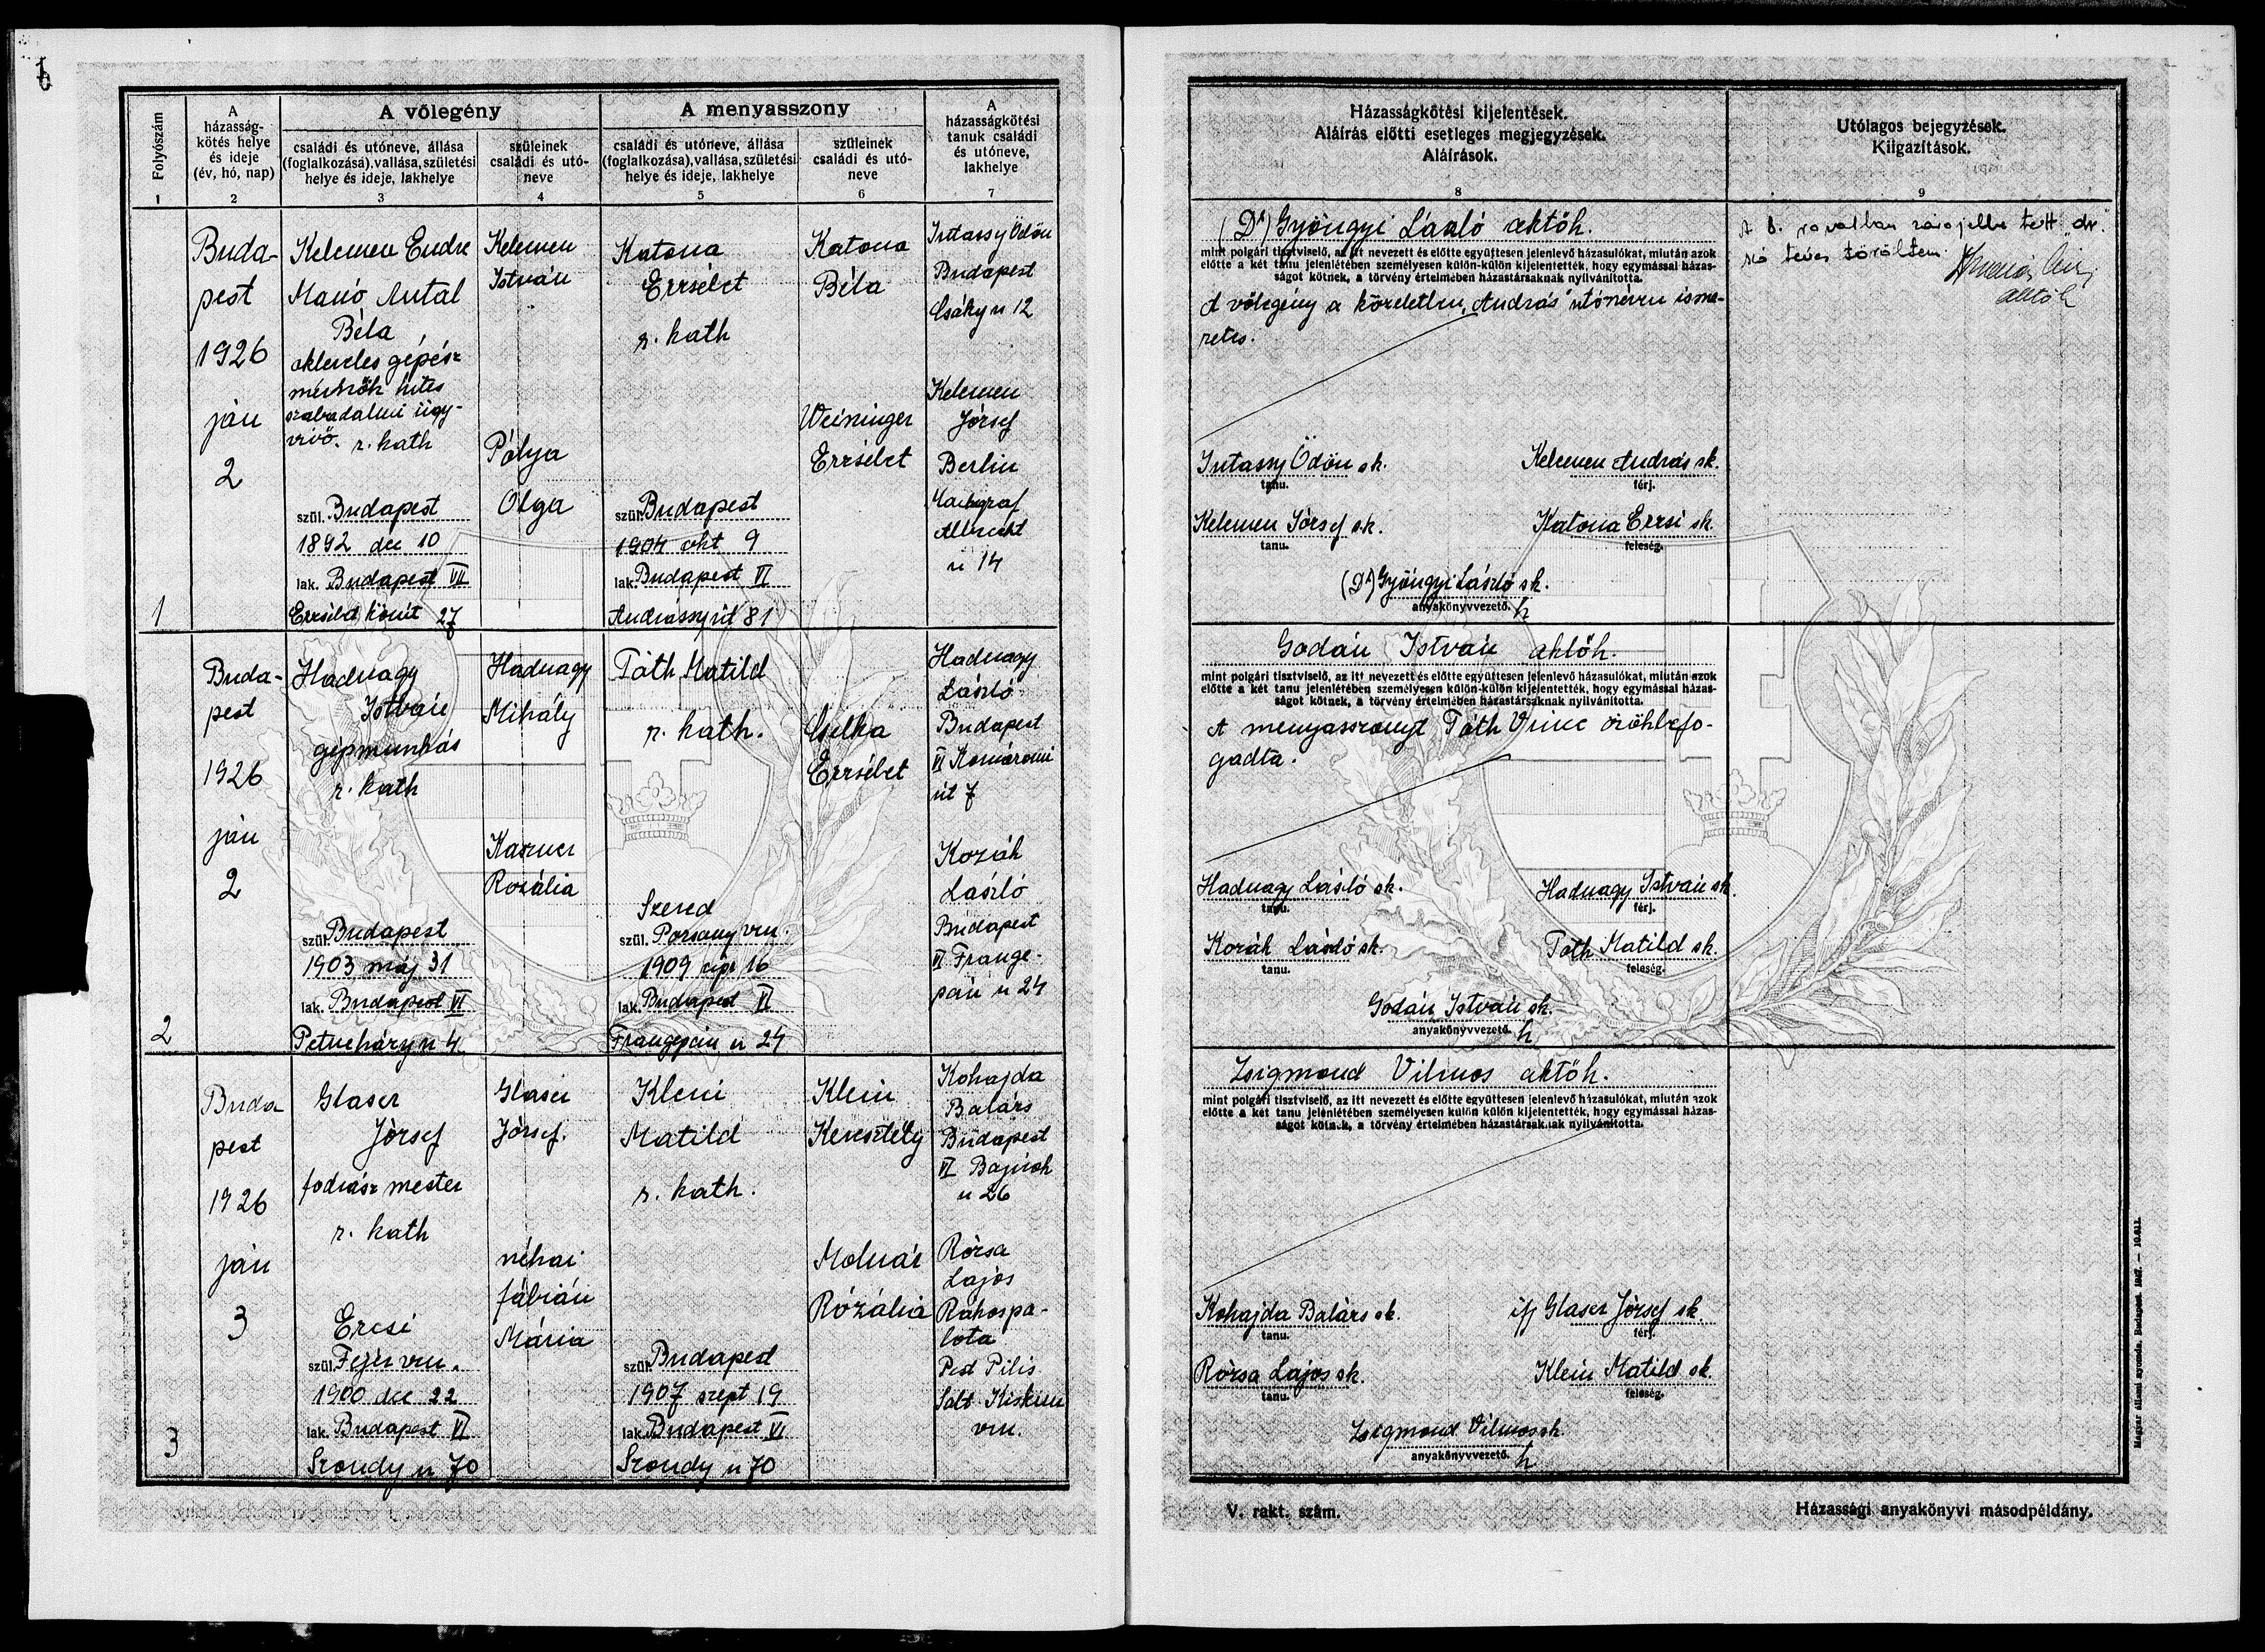 Folyószám
A
házasság-
kötés helye
és ideje
(év, hó, nap)
A vőlegény
családi és utóneve, állása
(foglalkozása), vallása, születési
helye és ideje, lakhelye
szüleinek
családi és utó-
neve
A menyasszony
családi és utóneve, állása
(foglalkozása), vallása, születési
helye és ideje, lakhelye
szüleinek
családi és utó-
neve
A
házasságkötési
tanuk családi
és utóneve,
lakhelye
1
2
3
4
5
6
7
1
Buda-
pest
1926
ján
2
Kelemen Endre
Manó Antal
Béla
okleveles gépész
mérnök hites
szabadalmi ügy-
vivő. r. kath
szül. Budapest
1892 dec 10
lak. Budapest VII
Erzsébet körút 27
Kelemen
István
Pólya
Olga
Katona
Erzsébet
r. kath
szül. Budapest
1904 okt 9
lak. Budapest VI
Andrássy út 81
Katona
Béla
Weininger
Erzsébet
Intassy Ödön
Budapest
Csáky u 12
Kelemen
József
Berlin
Albrecht
u 14
2
Buda-
pest
1926
ján
2
Hadnagy
István
gépmunkás
r. kath
szül. Budapest
1903 máj 31
lak. Budapest VI
Petneházy u 4
Hadnagy
Mihály
Kaszner
Rozália
Tóth Matild
r. kath.
Szered
szül. Pozsony vm.
1909 ápr 16
lak. Budapest VI
Frangepán u 24
Cselka
Erzsébet
Hadnagy
László
Budapest
VI Komáromi
út 7
Kozák
László
Budapest
VI Frange-
pán u 24
3
Buda
pest
1926
ján
3
Glaser
József
fodrász mester
r. kath
Ercsi
szül. Fejér vm.
1900 dec 22
lak. Budapest VI
Szondy u 70
Glaser
József.
néhai
Fábián
Mária
Klein
Matild
r. kath.
szül. Budapest
1907 szept 19
lak. Budapest VI
Szondy u 70
Klein
Keresztély
Molnár
Rozália
Kohajda
Balázs
Budapest
VI Bajnok
u 26
Rózsa
Lajos
Rákospa-
lota
Pest Pilis
Solt Kiskun
vm.
Házasságkötési kijelentések.
Aláírás előtti esetleges megjegyzések.
Aláírások.
8
Utólagos bejegyzések.
Kiigazítások.
9
(Dr) Gyöngyi László aktőh.
mint polgári tisztviselő, az itt nevezett és előtte együttesen jelenlevő házasulókat, miután azok
előtte a két tanu jelenlétében személyesen külön-külön kijelentették, hogy egymással házas-
ságot kötnek, a törvény értelmében házastársaknak nyilvánította.
A vőlegény a közéletben „András" utónéven isme-
retes.
Intassy Ödön sk.
tanu.
Kelemen András sk.
férj.
Kelemen József sk.
tanu.
Katona Erzsi sk.
feleség.
(Dr) Gyöngyi László sk.
anyakönyvvezető. h
A 8. rovatban zárójelbe tett „dr."
szó téves töröltem.
aktőh
Godán István aktőh.
mint polgári tisztviselő, az itt nevezett és előtte együttesen jelenlevő házasulókat, miután azok
előtte a két tanu jelenlétében személyesen külön-külön kijelentették, hogy egymással házas-
ságot kötnek, a törvény értelmében házastársaknak nyilvánította.
A menyasszonyt Tóth Vince örökbefo-
gadta.
Hadnagy László sk.
tanu.
Hadnagy István sk.
férj.
Kozák László sk.
tanu.
Tóth Matild sk.
feleség.
Godán István sk.
anyakönyvvezető. h
Zsigmond Vilmos aktőh.
mint polgári tisztviselő, az itt nevezett és előtte együttesen jelenlevő házasulókat, miután azok
előtte a két tanu jelenlétében személyesen külön külön kijelentették, hogy egymással házas-
ságot kötnek, a törvény értelmében házastársaknak nyilvánította.
Kohajda Balázs sk.
tanu.
ifj Glaser József sk.
férj.
Rózsa Lajos sk.
tanu.
Klein Matild sk.
feleség.
Zsigmond Vilmos sk
anyakönyvvezető. h
V. rakt. szám.
Házassági anyakönyvi másodpéldány.